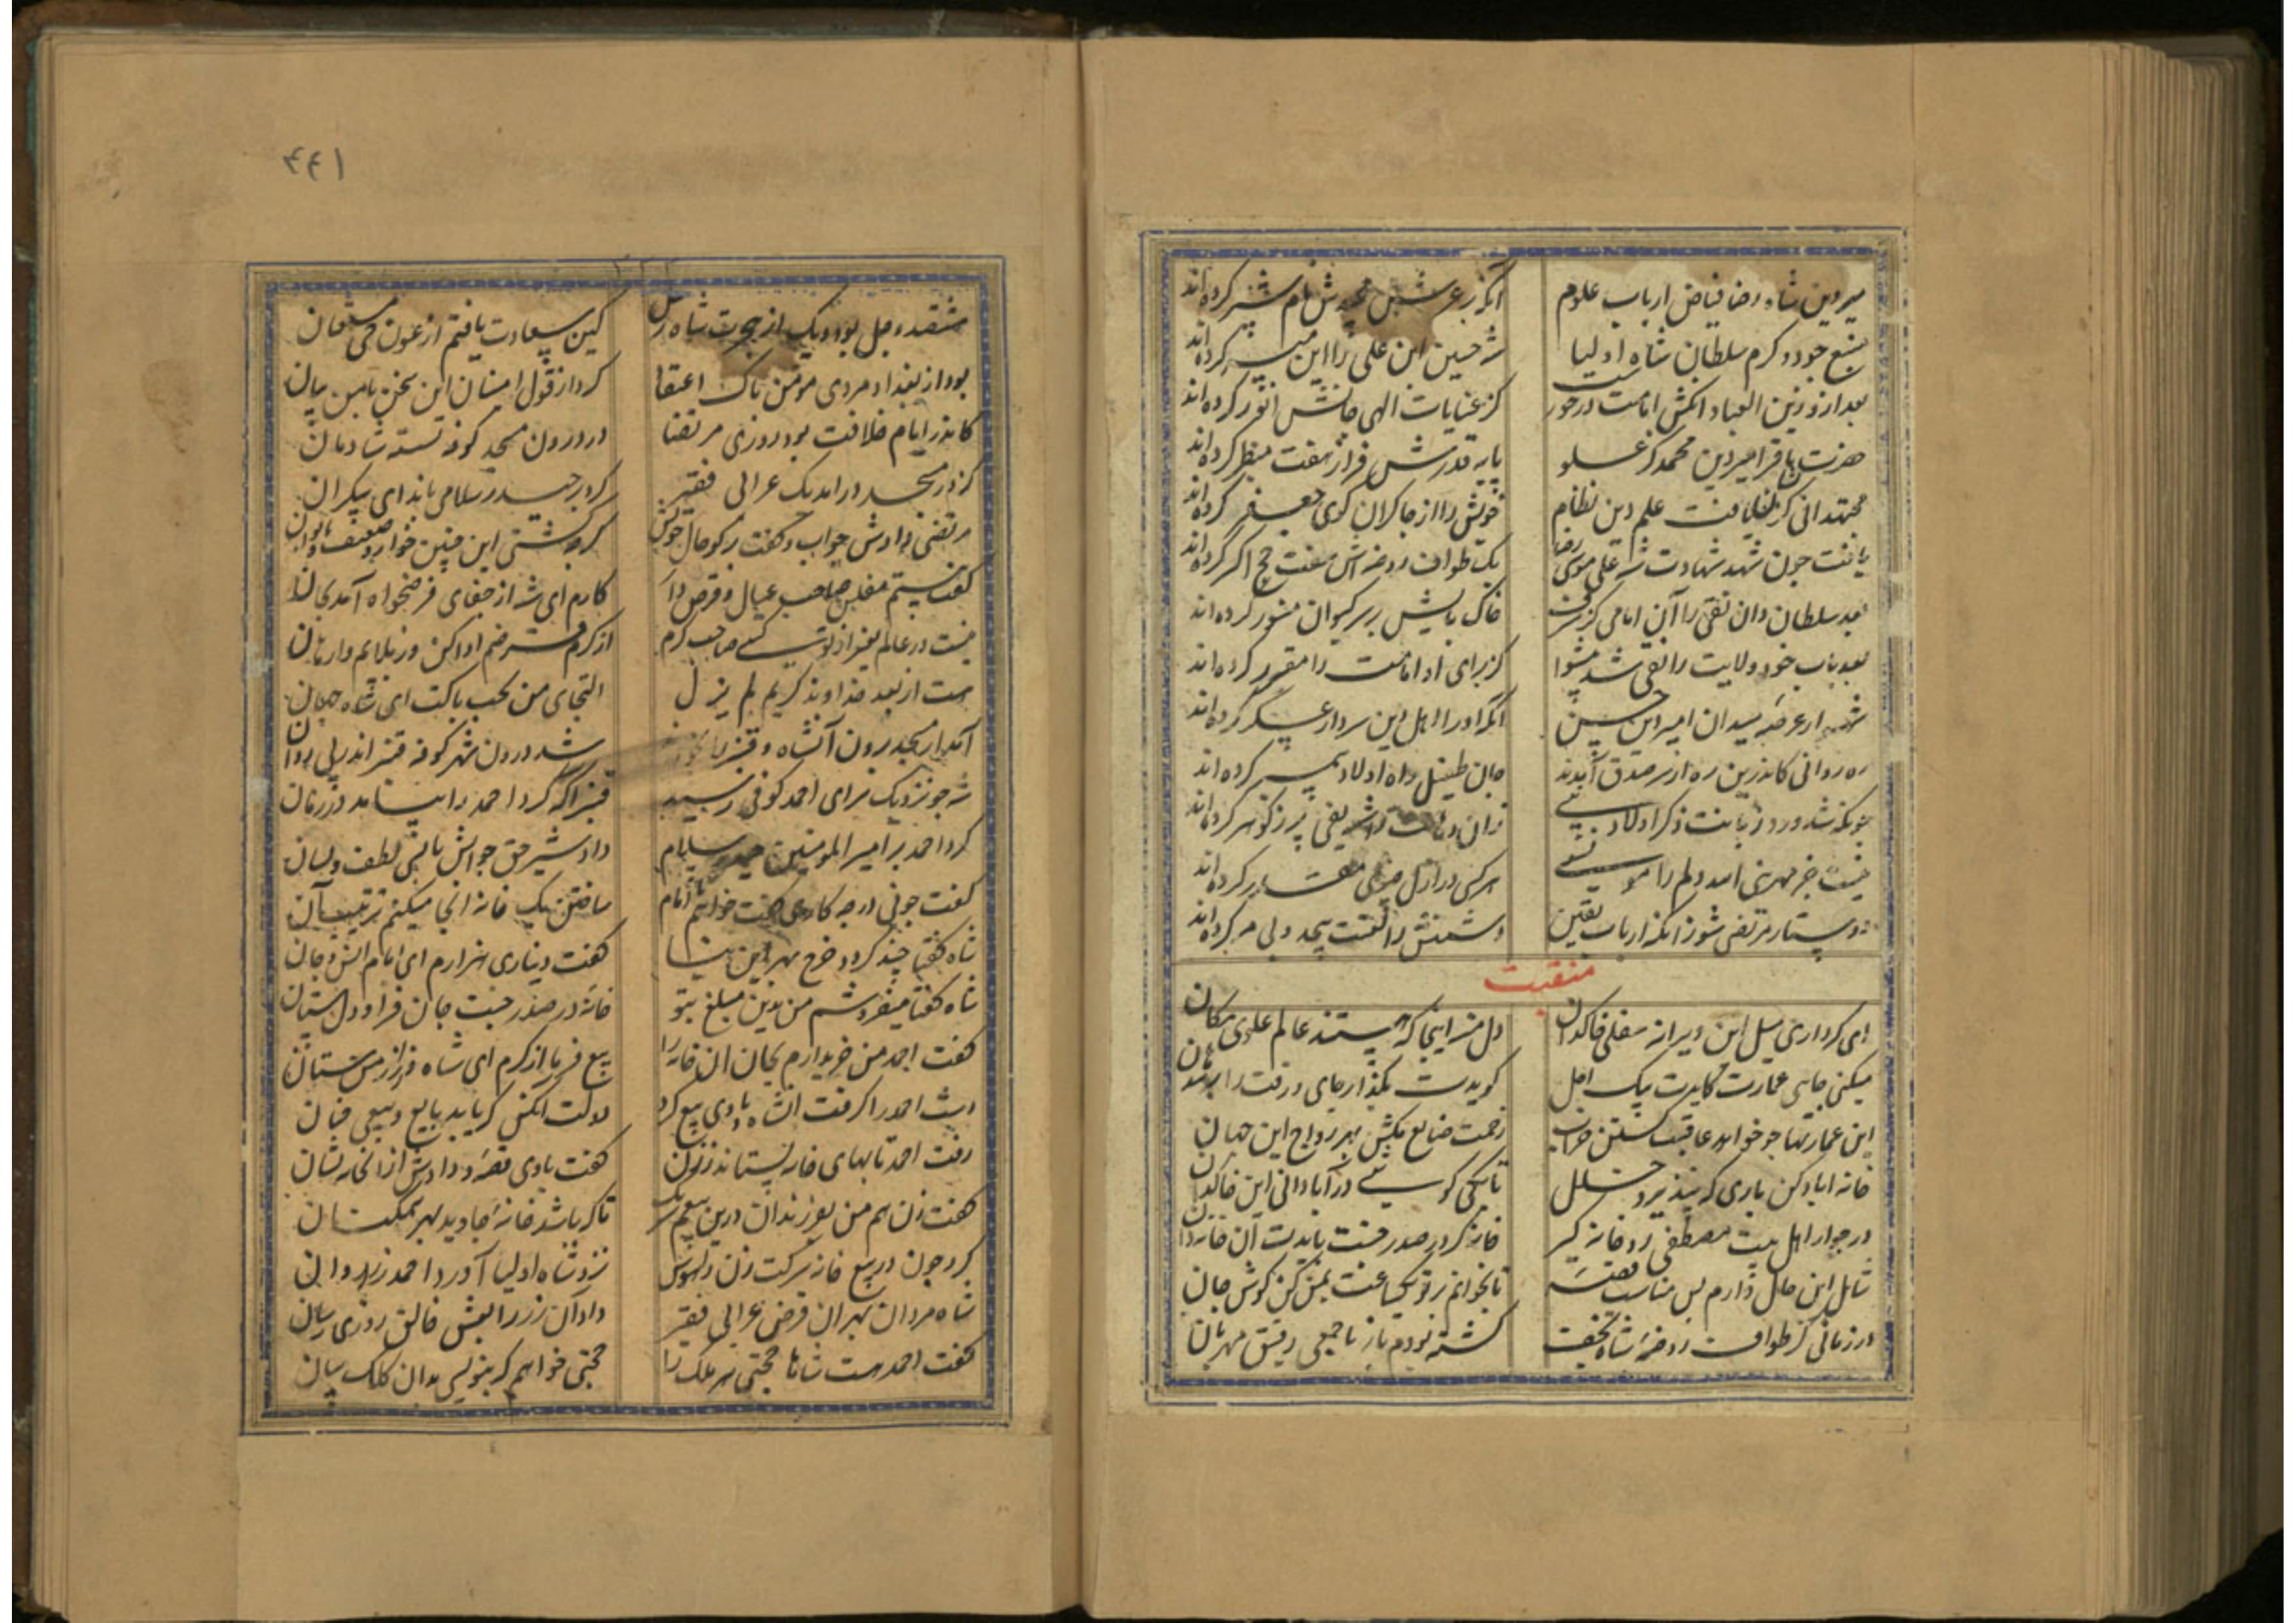 میر دین شاه رضا فیاض ارباب علوم
آنکه زعرش نام شبر کرده‌اند
منبع جود و کرم سلطان شاه اولیا
شه حسین ابن علی را این میسر کرده‌اند
بعد ازو زین العباد آنکش امامت درخور است
کز عنایات الهی جانش انور کرده‌اند
حضرت باقر امیر دین محمد کز علو
پایه قدرش فراز هفت منظر کرده‌اند
مجتهدانی کزیشان یافت علم دین نظام
خویش را از چاکران کوی جعفر کرده‌اند
یافت چون شهد شهادت شه علی موسی رضا
یک طواف روضه‌اش هفت حج اکبر کرده‌اند
بعد سلطان دان تقی را آن امامی کز شرف
خاک پایش بر سر کیوان منور کرده‌اند
بعد باب خود ولایت را نقی شد پیشوا
کز برای او امامت را مقرر کرده‌اند
عرصه میدان امیر ابن حسین
آنکه او را اهل دین سردار عسکر کرده‌اند
ره روانی کاندرین ره از سر صدق آمدند
جان طفیل راه اولاد پیمبر کرده‌اند
چونکه شد ورد زبانت ذکر اولاد نبی
زان دهانت را پر ز گوهر کرده‌اند
نیست جز مهر تو امید دلم را مونسی
هر کسی در ازل چیزی مقدر کرده‌اند
دوستدار مرتضی شو زانکه ارباب یقین
دشمنش را لعنت بیحد و بی مر کرده‌اند
منقبت
ای که داری میل این ویرانه سفلی خاکدان
دل منه اینجا که هستند عالم علوی مکان
میکنی جای عمارت کایدت پیک اجل
گویدت بگذار جای و رفت را
این عمارتها چو خواهد عاقبت گشتن خراب
زحمت ضایع مکش بهر رواج این جهان
خانه آباد کن باری که نپذیرد خلل
تا بکی کوشی در آبادانی این خاکدان
در جوار اهل بیت مصطفی رو خانه گیر
خانه گر در صدر جنت بایدت آن خانه دان
شامل این حال دارم بس مناسب قصه
تا بخوانم بر تو یکساعت بمن کن گوش جان
در زمانی کز طواف روضه شاه نجف
گشته بودم باز با جمعی رفیق مهربان
۴۴۱
ششصد و چل بود و یک از هجرت شاه رسل
کین سعادت یافتم از عون حی مستعان
بود از بغداد مردی مومن پاک اعتقاد
کرد از قول امینان این سخن با من بیان
کاندر ایام خلافت بود روزی مرتضا
در درون مسجد کوفه نشسته شادمان
کز در مسجد درآمد یک عرابی فقیر
کرد بر حیدر سلامی باندای بیکران
مرتضی دادش جواب و گفت برگو حال خویش
کز چه گشتی این چنین خوار و ضعیف و ناتوان
گفت هستم مفلس صاحب عیال و قرض دار
کارم ای شه از جفای قرضخواه آمد بجان
نیست در عالم بغیر از تو کسی صاحب کرم
از کرم قرضم ادا کن وز بلایم وارهان
هست از بعد خداوند کریم لم یزل
التجای من بحب پاکت ای شاه جهان
آمد از مسجد برون آنشاه و قنبر را
شد درون شهر کوفه قنبر اندر پی روان
شه چو نزدیک سرای احمد کوفی رسید
قنبر آگه کرد احمد را بیامد در زمان
کرد احمد بر امیر المومنین حیدر سلام
داد شیر حق جوابش با بسی لطف و لسان
گفت چونی در چه کاری گفت خواهم ای امام
ساختن یک خانه اینجا میکنم ترتیب آن
شاه گفتا چند کردی خرج بهر این بنا
گفت دیناری هزارم ای امام انس و جان
شاه گفتا میفروشم من بدین مبلغ بتو
خانه در صدر جنت جان فزا و دلستان
گفت احمد من خریدارم بجان آن خانه را
بیع فرما از کرم ای شاه و زر از من ستان
دست احمد را گرفت آنشاه و با وی بیع کرد
دولت آنکس که یابد بایع و بیعی چنان
رفت احمد تا بهای خانه بستاند ز زن
گفت با وی قصه و دادش از آنخانه نشان
گفت زن هم من بفرزندان درین بیعم شریک
تا که باشد خانه جاوید بهر همگنان
کرد چون در بیع خانه شرکت زن را قبول
نزد شاه اولیا آورد احمد زر روان
شاه مردان بهر آن قرض عرابی فقیر
داد آن زر را بعشق خالق روزی رسان
گفت احمد هست شاها حجتی هر ملک را
حجتی خواهم که بنویسی بدان کلک بیان